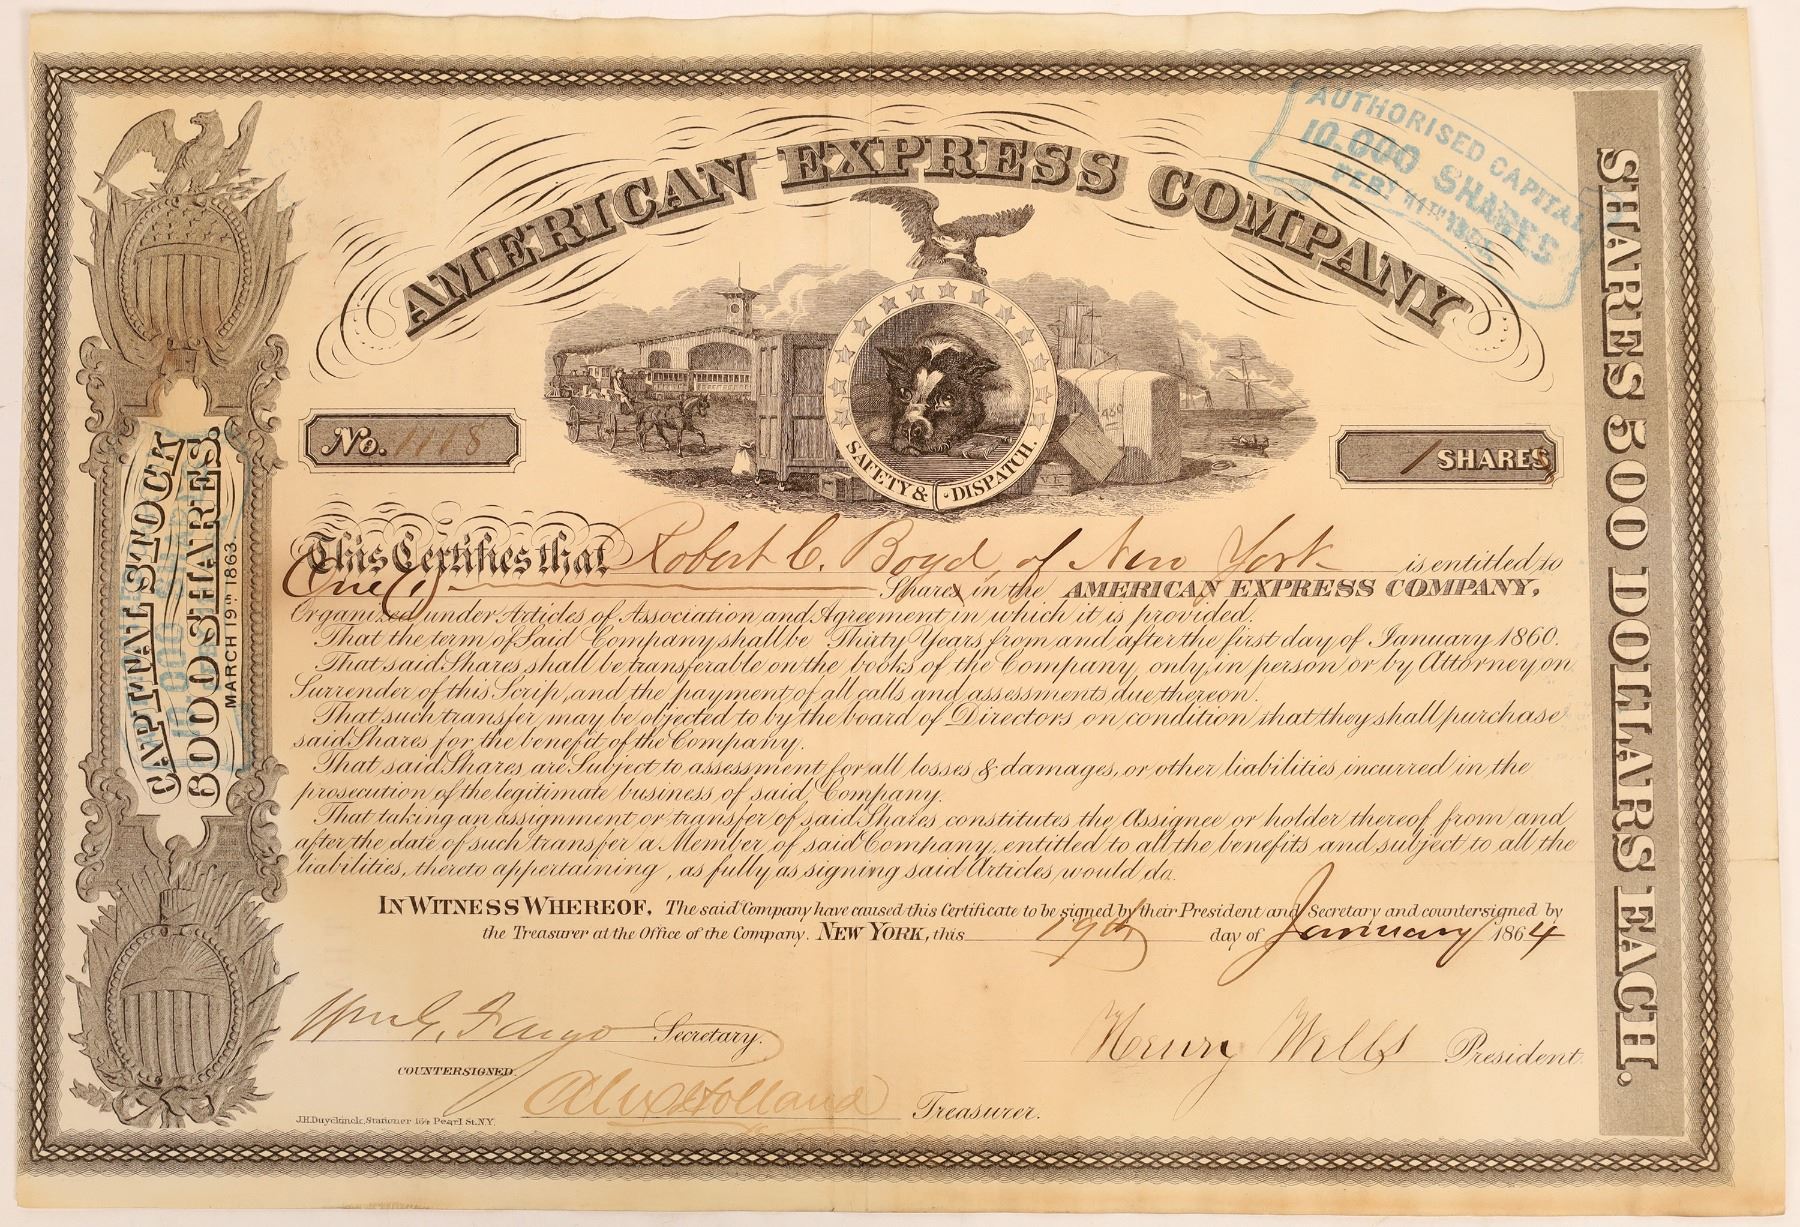 AMERICAN EXPRESS COMPANY
AUTHORISED CAPITAL
10.000 SHARES
SAFETY & DISPATCH.
450
No. 1118
1 SHARES
CAPITAL STOCK
6000 SHARES.
MARCH 19TH 1863.
This Certifies that Robert C. Boyd, of New York is entitled to
One (1) Shares in the AMERICAN EXPRESS COMPANY,
Organized under Articles of Association and Agreement in which it is provided.
That the term of said Company shall be Thirty Years from and after the first day of January 1860.
That said Shares, shall be transferable on the books of the Company, only, in person or by Attorney on
Surrender of this Scrip, and the payment of all calls and assessments due thereon.
That such transfer may be objected to by the board of Directors on condition that they shall purchase
said Shares for the benefit of the Company.
That said Shares are Subject to assessment for all losses & damages, or other liabilities incurred in the
prosecution of the legitimate business of said Company.
That taking an assignment or transfer of said Shares constitutes the Assignee or holder thereof from and
after the date of such transfer a Member of said Company, entitled to all the benefits and subject to all the
liabilities, thereto appertaining, as fully as signing said Articles would do.
IN WITNESS WHEREOF, The said Company have caused this Certificate to be signed by their President and Secretary and countersigned by
the Treasurer at the Office of the Company. NEW YORK, this 19th day of January 1864
Wm G. Fargo Secretary.
Henry Wells President
COUNTERSIGNED.
Alex Holland Treasurer.
J.H. Duyckinck, Stationer 164 Pearl St. N.Y.
SHARES 500 DOLLARS EACH.